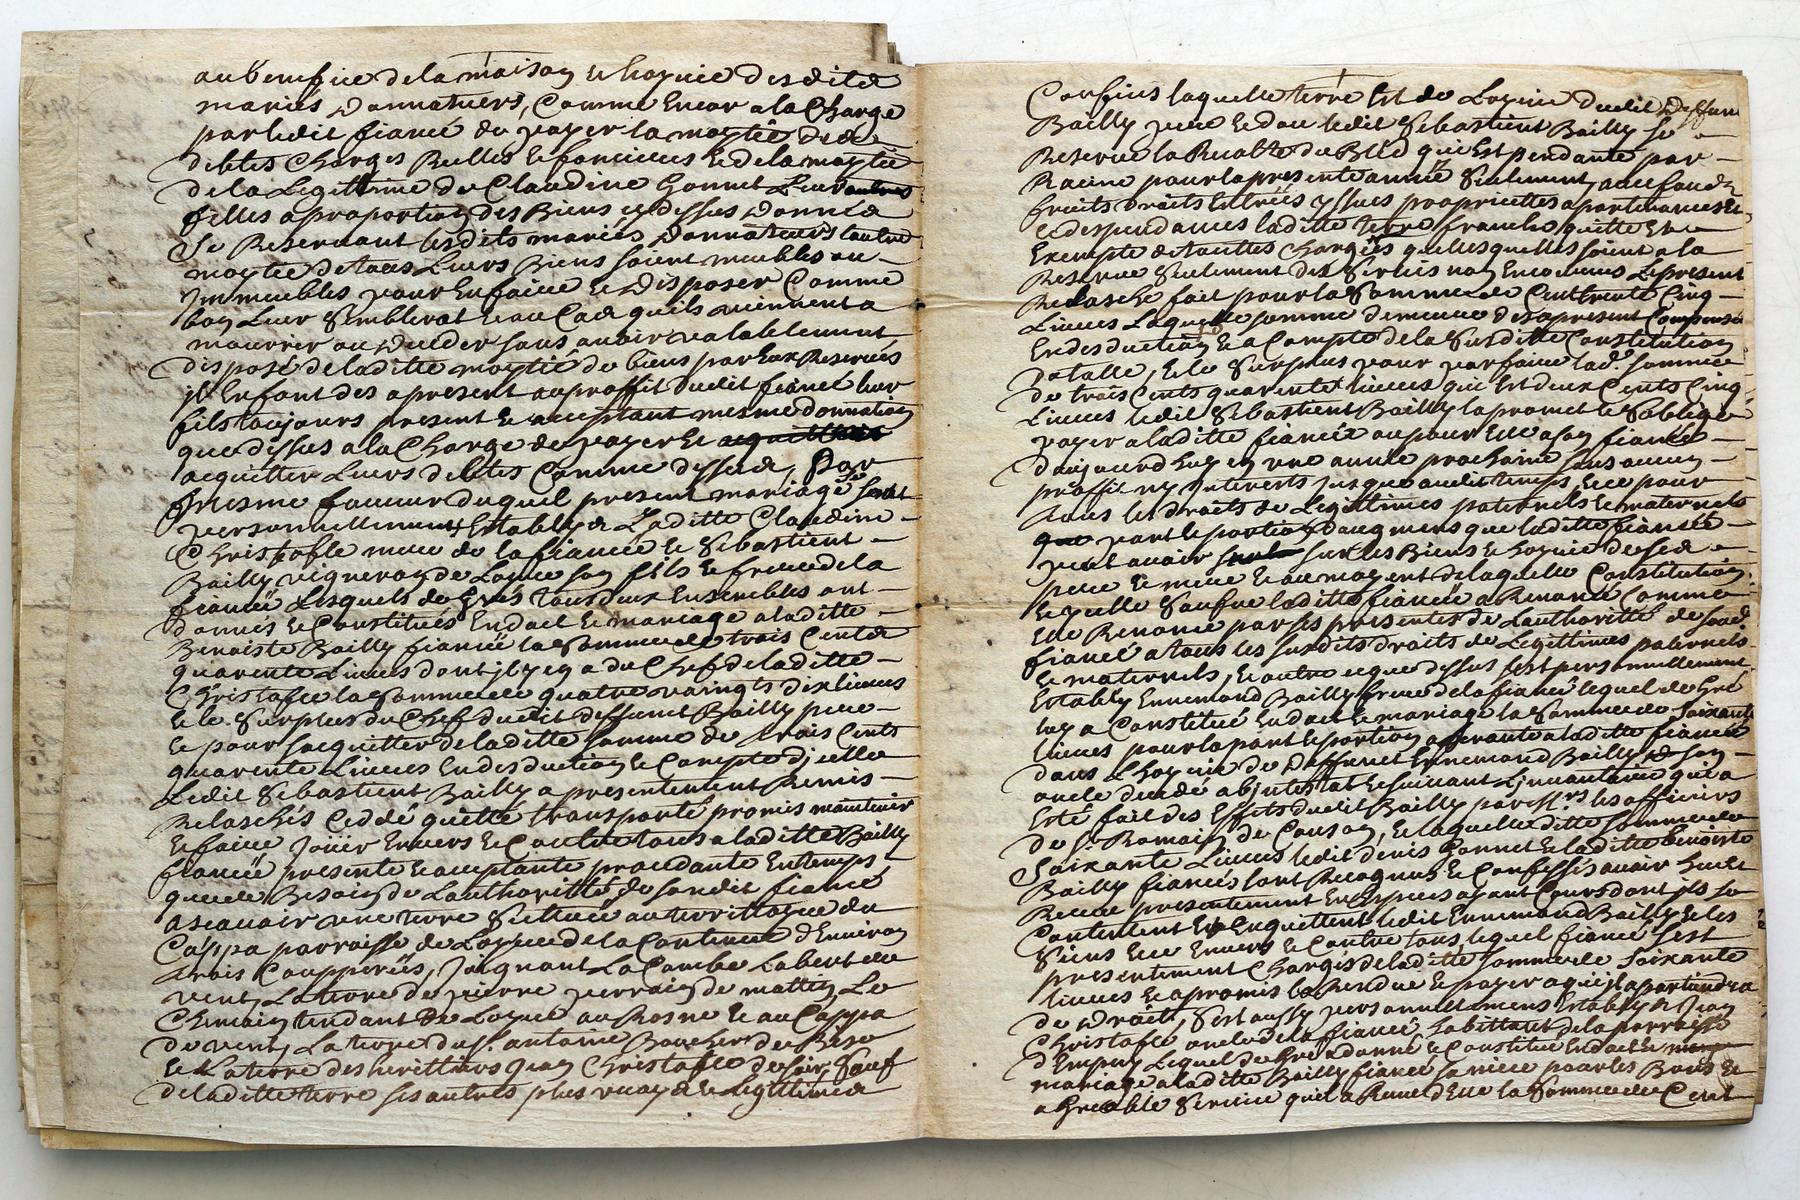 au benefice de la maison et hoyrie desdits
mariés donnateurs, comme encor a la charge
par ledit fiancé de payer la moytié de
debtes charges reelles et foncieres et de la moytié
de la legittime de Claudine Gonnet leur autres
filles a proportion des biens cy dessus donnés
se reservant lesdits mariés donnateurs l'autre
moytié de tous leurs biens soient meubles ou
immeubles pour en faire et disposer comme
bon leur semblerat et au cas quils viennent a
mourrir ou deceder sans avoir valablement
disposé de laditte moytié de biens par eux reservés
il en font des a present au proffit dudit fiancé leur
fils toujours present et acceptant mesme donnation
que dessus a la charge de payer et
acquitter leurs debtes comme dessus, Par
mesme faveur duquel present mariage se sont
personnellement establys laditte Claudine
Christofle mere de la fiancée et Sebastient
Bailly vigneron de Loyre son fils et frere de la
fiancée lesquels de grés tous deux ensembles ont
donnés et constitués en dot et mariage a laditte
Benoiste Bailly fiancée la somme de trois cents
quarente livres dont il y en a du chef de laditte
Christofle la somme de quatre vaingts dix livres
et le surplus du chef dudit deffunct Bailly pere
et pour s'acquitter de laditte somme de trois cents
quarente livres en desduction et compte d'icelle
ledit Sebastient Bailly a presentement remis
relaschés ceddé quitté transporté promis maintenir
et faire jouir envers et contre tous a laditte Bailly
fiancée presente et acceptante procedante en temps
que de besoin de l'authoritté de sondit fiancé
ascavoir une terre scittuée au territtoyre du
Cappa parroisse de Loyre de la contenue d'environ
trois coupperées, joignant la combe labert de
vent, la terre de pierre perrain de mattin, le
chemain tendant de Loyre au Rosne et au Cappa
de vent, la terre du Sr. antoine Boucher de Bize
et la terre des herittiers Jean Christofle de soir, sauf
de laditte terre ses autres plus vrays et legittimes
Confins laquelle terre est de loyrie dudit deffunt
Bailly pere et dont ledit Sebastient Bailly se
reserve la recolte du bled qui est pendante par
racine pour la presente année seulement, avec fonds
fruits droits entrées yssues propriettes apartenances et
et despendances laditte terre franche quitte et
exempte de touttes charges quelesquelles soient a la
reserve seulement des servis non encourus le present
relasche fait pour la somme de cent trente cinq
livres laquelle somme demeure des a present compensé
en desduction et a compte de la susditte constitution
dotalle, et le surplus pour parfaire lade. somme
de trois cents quarente livres qui est deux cents cinq
livres ledit Sebastient Bailly la promet et s'oblige
payer a laditte fiancée ou pour elle a son fiancé
d'aujourdhuy en une année prochaine sans aucun
proffit ny interests jusque audit temps, et ce pour
tous les droits de legittimes paternels et maternels
part et portion d'augmens que laditte fiancée
peut avoir sur les biens et hoyrie de ses
pere et mere et au moyent de laquelle constitution
et icelle saufue laditte fiancée a renoncé comme
elle renonce par ses presentes de l'authoritté de sond.
fiancé a tous les susdits droits de legittimes paternels
et maternels, et outre ce que dessus s'est personnellement
establly Ennemond Bailly frere de la fiancée lequel de gré
luy a constitué en dot et mariage la somme de soixante
livres pour la part et portion afferante a laditte fiancée
dans l'hoyrie de deffunct Ennemond Bailly son
oncle decedé abjntestat et suivant l'jnvantaire qui a
esté fait des effets dudit Bailly par Mrs. les officiers
de St. Romain de Couson, et laquelle ditte somme de
soixante livres ledit denis Gonnet et laditte benoiste
Bailly fiancés sont recognus et confessés avoir heu et
receue presentement en espèces ayant cours dont ils se
contentent et en quittent ledit Ennemond Bailly et les
siens et ce envers et contre tous, lequel fiancé s'est
presentement chargés de laditte somme de soixante
livres et a promis la rendre et payer a qui il apartiendra
de droit, s'est aussy personnellement establly Sr. Jean
Christofle oncle de la fiancée habittant de la parroisse
d'Empuy lequel de gré a donné et constitué en dot et
mariage a laditte Bailly fiancée sa niece pour les bons et
agreable service quil a receu d'elle la somme de cent